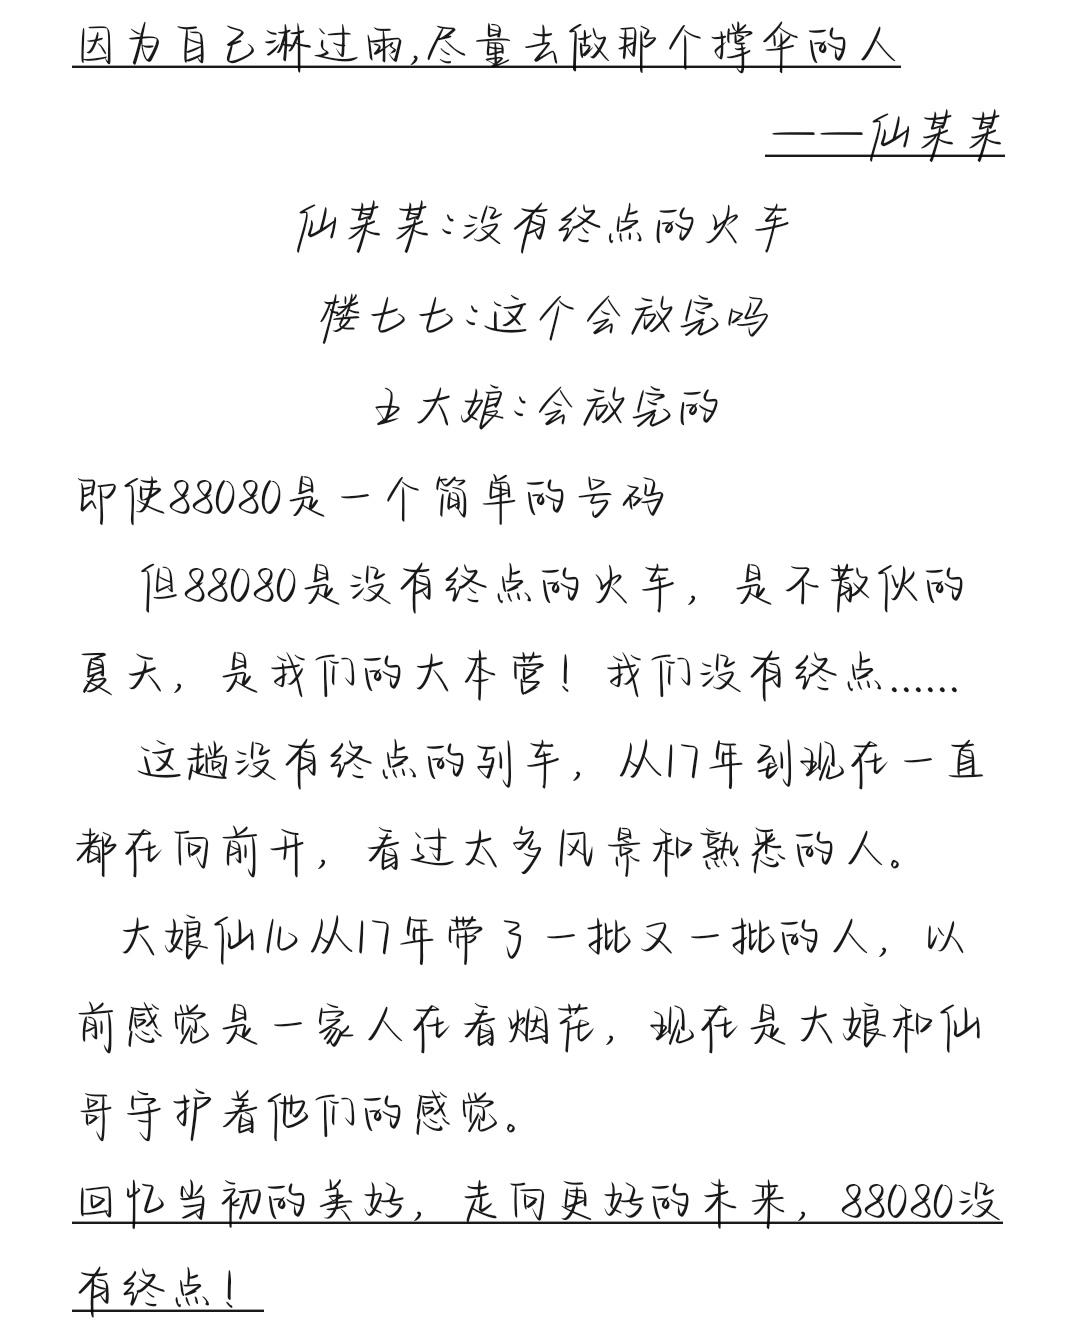 因为自己淋过雨,尽量去做那个撑伞的人
——仙某某
仙某某:没有终点的火车
楼七七:这个会放完吗
王大娘:会放完的
即使88080是一个简单的号码
但88080是没有终点的火车，是不散伙的
夏天，是我们的大本营！我们没有终点......
这趟没有终点的列车，从17年到现在一直
都在向前开，看过太多风景和熟悉的人。
大娘仙儿从17年带了一批又一批的人，以
前感觉是一家人在看烟花，现在是大娘和仙
哥守护着他们的感觉。
回忆当初的美好，走向更好的未来，88080没
有终点！